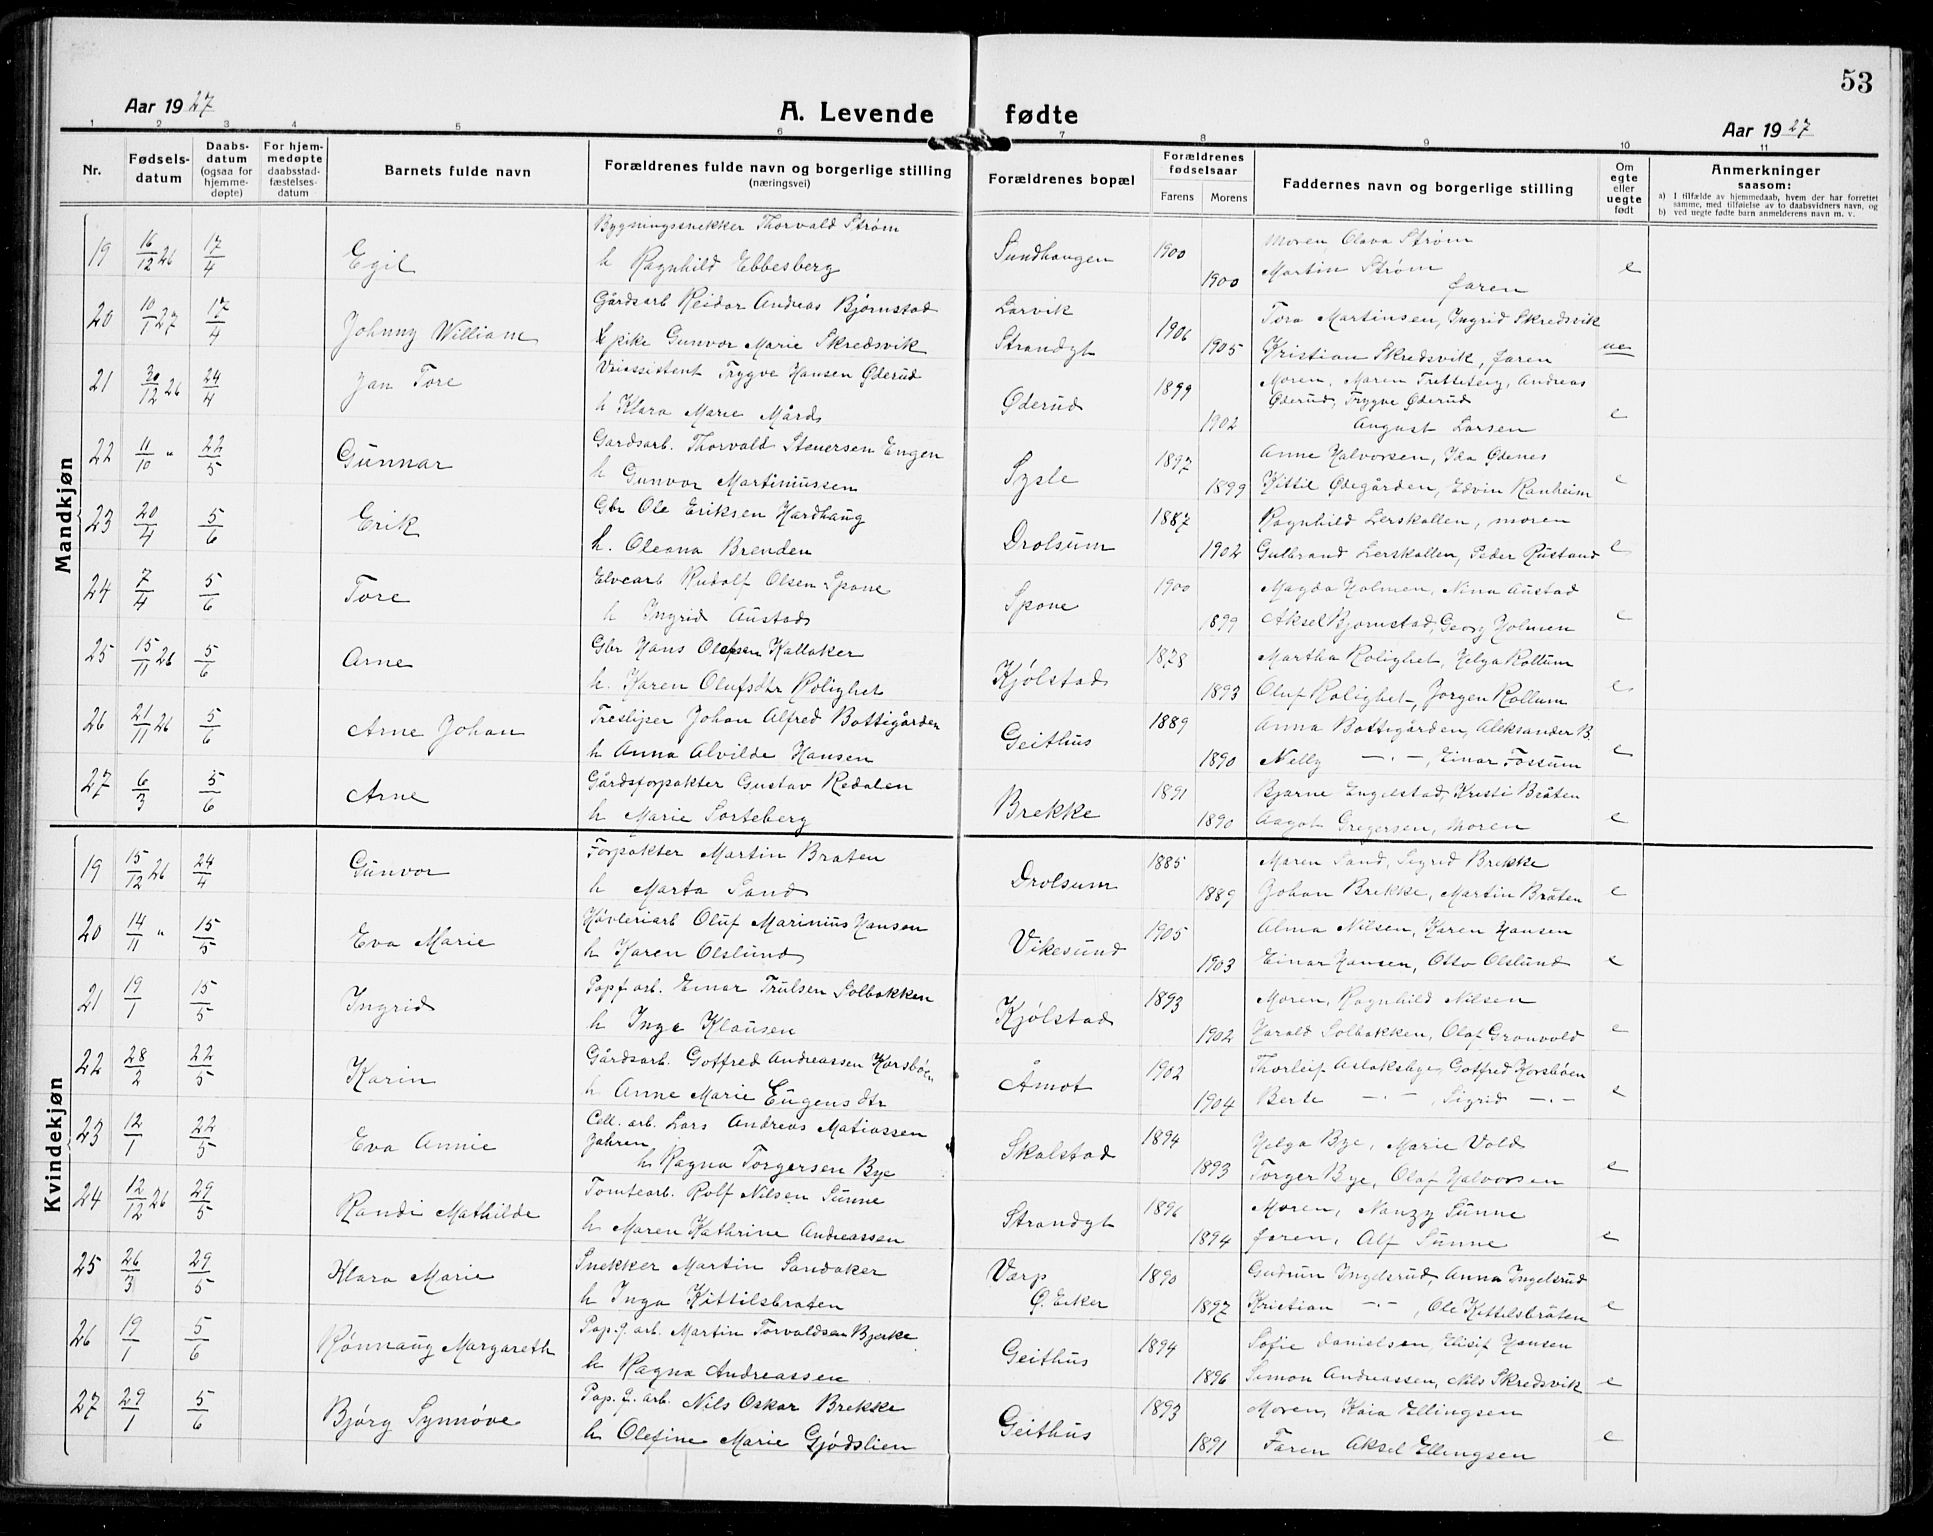 53
Aar 1927
A. Levende fødte
Aar 1927
1 2 3 4 5 6 7 8 9 10 11
Nr.
Fødsels-
datum
Daabs-
datum
(ogsaa for
hjemme-
døpte)
For hjem-
medøpte
daabsstad-
fæstelses-
datum
Barnets fulde navn
Forældrenes fulde navn og borgerlige stilling
(næringsvei)
Forældrenes bopæl
Forældrenes
fødselsaar
Farens Morens
Faddernes navn og borgerlige stilling
Om
egte
eller
uegte
født
Anmerkninger
saasom:
a) I tilfælde av hjemmedaab, hvem der har forrettet
samme, med tilføielse av to daabsvidners navn, og
b) ved uegte fødte barn anmelderens navn m. v.
Mandkjøn
Bygningssnekker Thorvald Strøm 1900 Moren Olava Strøm
19 16/12 26 17/4 Egil h Ragnhild Ebbesberg Sundhaugen 1900 Martin Strøm faren e
Gårdsarb Reidar Andreas Bjørnstad Larvik 1906 Tora Martinsen, Ingrid Skredsvik
20 10/1 27 17/4 Johnny William pike Gunvor Marie Skredsvik Strandgt 1905 Kristian Skredsvik, faren ue
21 30/12 26 24/4 Jan Tore Trygve Hansen Øderud 1899 Moren, Maren Tretteteig, Andreas
Øderud, Trygve Øderud
h Klara Marie Mård Øderud 1902 August Larsen e
22 11/10 " 22/5 Gunnar Gardsarb. Thorvald Stenersen Engen 1897 Anne Halvorsen, Ida Ødenes
h Gunvor Martiniussen Sysle 1899 Kittil Ødegården, Edvin Ranheim e
23 20/4 5/6 Erik Gbr Ole Eriksen Hardhaug 1887 Ragnhild Lerskallen, moren
h. Oleana Brenden Drolsum 1902 Gulbrand Lerskallen, Peder Rustand e
24 7/4 5/6 Tore Elvearb Rudolf Olsen Spone 1900 Magda Holmen, Nina Austad
h Ingrid Austad Spone 1899 Aksel Bjornstad, Georg Holmen e
25 15/11 26 5/6 Arne Gbr Hans Olafsen Kallaker 1878 Martha Rolighet, Helga Rollum
h. Karen Olufsdtr Rolighet Kjølstad 1893 Oluf Rolighet, Jorgen Rollum e
26 21/11 26 5/6 Arne Johan Tresliper Johan Alfred Bottegården 1889 Anna Bottegården, Aleksander B.
h Anna Alvilde Hansen Geithus 1890 Nelly - · -, Einar Fossum e
27 6/3 5/6 Arne Gårdsforpakter Gustav Redalen 1891 Bjarne Engelstad, Kristi Bråten
h Marie Sorteberg Brekke 1890 Aagot Gregersen, Moren e
Kvindekjøn
19 15/12 26 24/4 Gunvor Forpakter Martin Braten 1885 Maren Sand, Sigrid Brekke
h Marta Sand Drolsum 1889 Johan Brekke, Martin Bråten e
20 14/11 " 15/5 Eva Marie Høvleriarb Oluf Marinius Hansen 1905 Alma Nilsen, Karen Hansen
h Karen Olslund Vikesund 1903 Einar Hansen, Otto Olslund e
21 19/1 15/5 Ingrid Papf arb. Einar Trulsen Solbakken 1893 Moren, Ragnhild Nilsen
h Inga Klausen Kjølstad 1902 Harald Solbakken, Olaf Gronvold e
22 28/2 22/5 Karin Gårdsarb. Gotfred Andreassen Korsbøen 1902 Thorleif Aslaksbye, Gotfred Korsbøen
h Anne Marie Eugensdtr Åmot 1904 Berte - · -, Sigrid - · - e
23 12/1 22/5 Eva Annie Cell. arb. Lars Andreas Matiassen 1894 Helga Bye, Marie Vold
Jahren
h. Ragna Torgersen Bye Skalstad 1893 Torger Bye, Olaf Halvorsen e
24 12/12 26 29/5 Randi Mathilde Tomtearb. Rolf Nilsen Sunne 1896 Moren, Nanzy Sunne
h Maren Kathrine Andreassen Strandgt 1894 faren, Alf Sunne e
25 26/3 29/5 Klara Marie Snekker Martin Sandaker Varp 1890 Gudrun Ingelsrud, Anna Ingelsrud
h Inga Kittilsbraten Ø. Eiker 1897 Kristian - · -, Ole Kittilsbråten e
26 19/1 5/6 Rønnaug Margareth Pap. f. arb. Martin Torvaldsen Bjerke 1894 Sofie Danielsen, Elisif Hansen
h Ragna Andreassen Geithus 1896 Simon Andreassen, Nils Skredsvik e
27 29/1 5/6 Bjørg Synnøve Pap. f. arb. Nils Oskar Brekke 1893 Moren, Kaia Ellingsen
h Olefine Marie Gjødslien Geithus 1891 Faren Aksel Ellingsen e